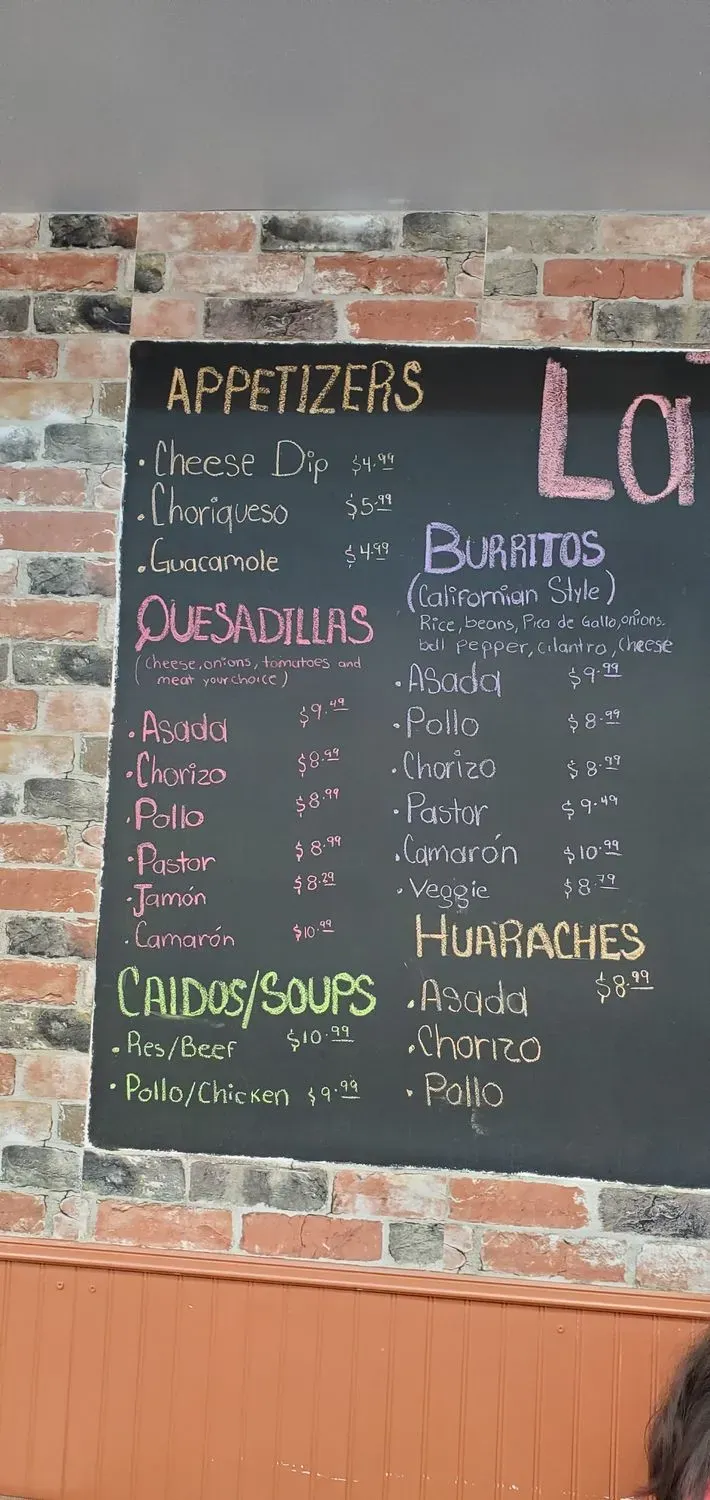 APPETIZERS
• Cheese Dip $4.99
• Choriqueso $5.99
• Guacamole $4.99
QUESADILLAS
(cheese, onions, tomatoes and
meat your choice)
• Asada $9.49
• Chorizo $8.99
• Pollo $8.99
• Pastor $8.99
• Jamón $8.29
• Camarón $10.99
CALDOS/SOUPS
• Res/Beef $10.99
• Pollo/Chicken $9.99
La
BURRITOS
(Californian Style)
Rice, beans, Pico de Gallo, onions.
bell pepper, cilantro, cheese
• Asada $9.99
• Pollo $8.99
• Chorizo $8.99
• Pastor $9.49
• Camarón $10.99
• Veggie $8.79
HUARACHES
• Asada $8.99
• Chorizo
• Pollo